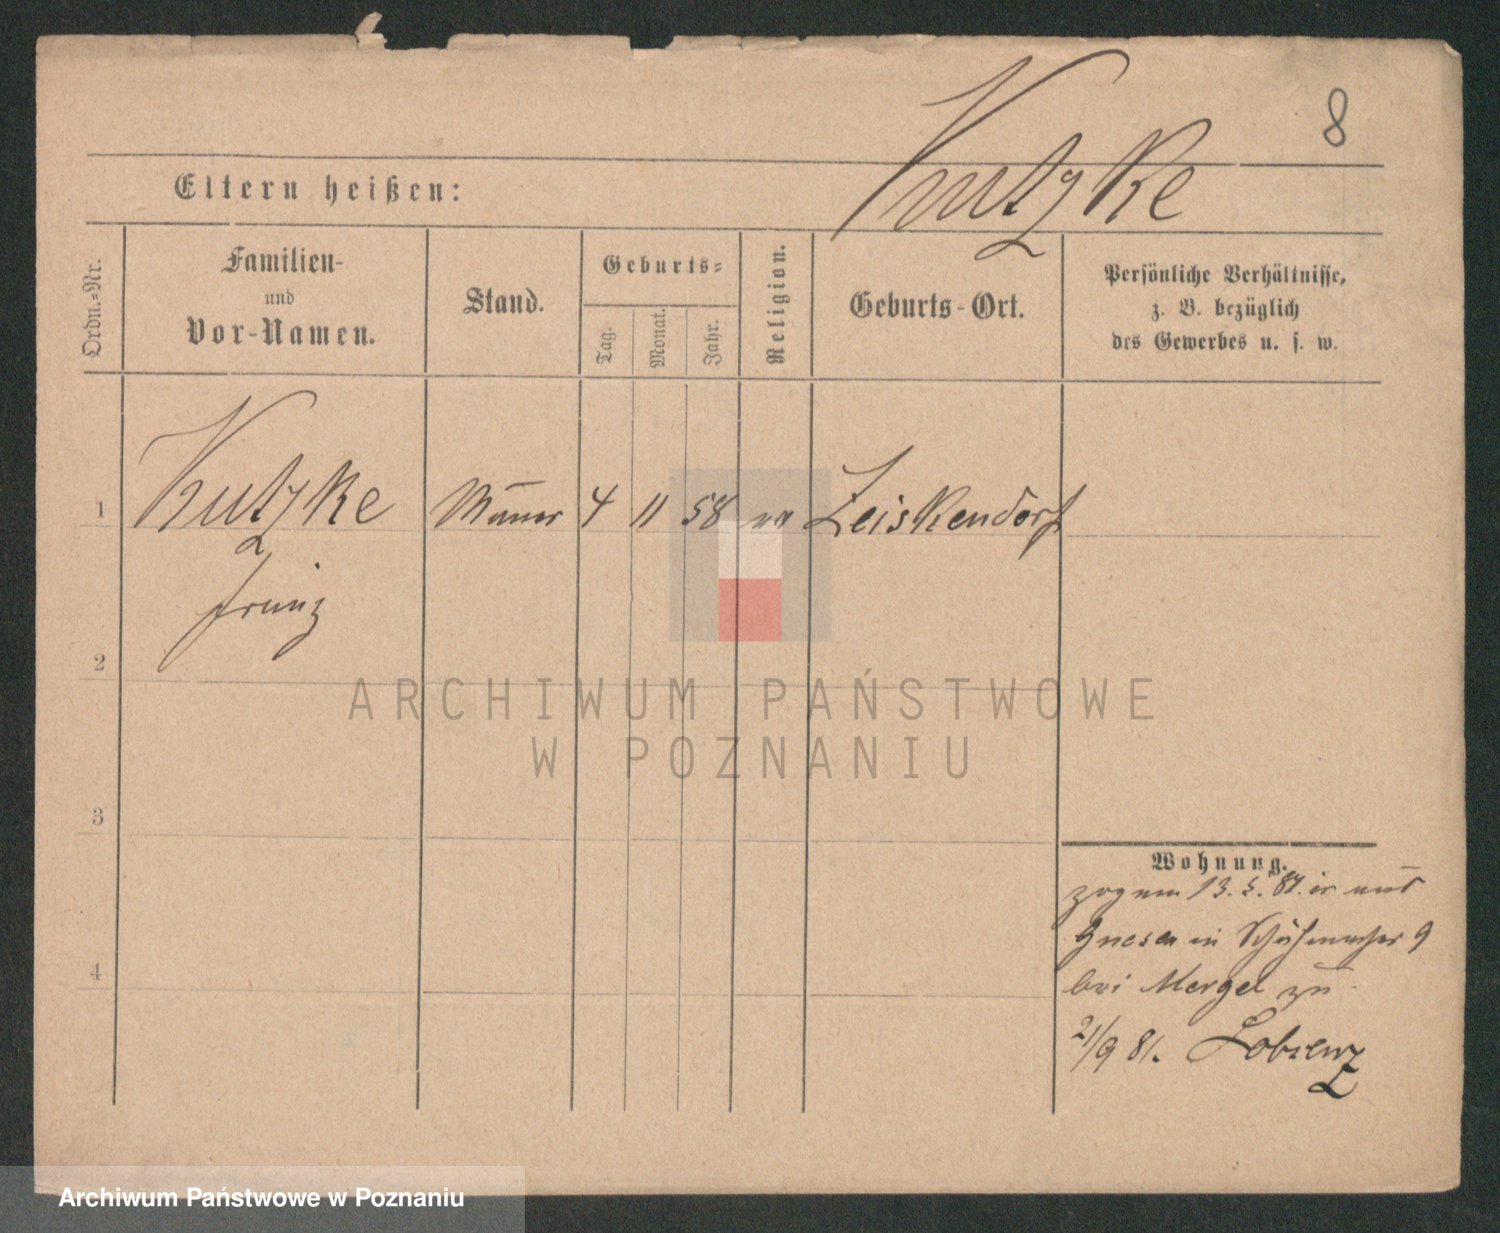 Kutzke
8
Eltern heißen:
Ordn.-Nr.
Familien-
und
Vor-Namen.
Stand.
Geburts-
Tag.
Monat.
Jahr.
Religion.
Geburts-Ort.
Persönliche Verhältnisse,
z. B. bezüglich
des Gewerbes u. s. w.
1
Kutzke
Maurer
4
11
58
Leiskendorf
Franz
2
3
4
Wohnung.
zog am 13. 5. 81. er aus
Gnesen in Schuhmacher 9
bei Mergel zu
21/9 81. Lobsenz
ARCHIWUM PAŃSTWOWE
W POZNANIU
Archiwum Państwowe w Poznaniu